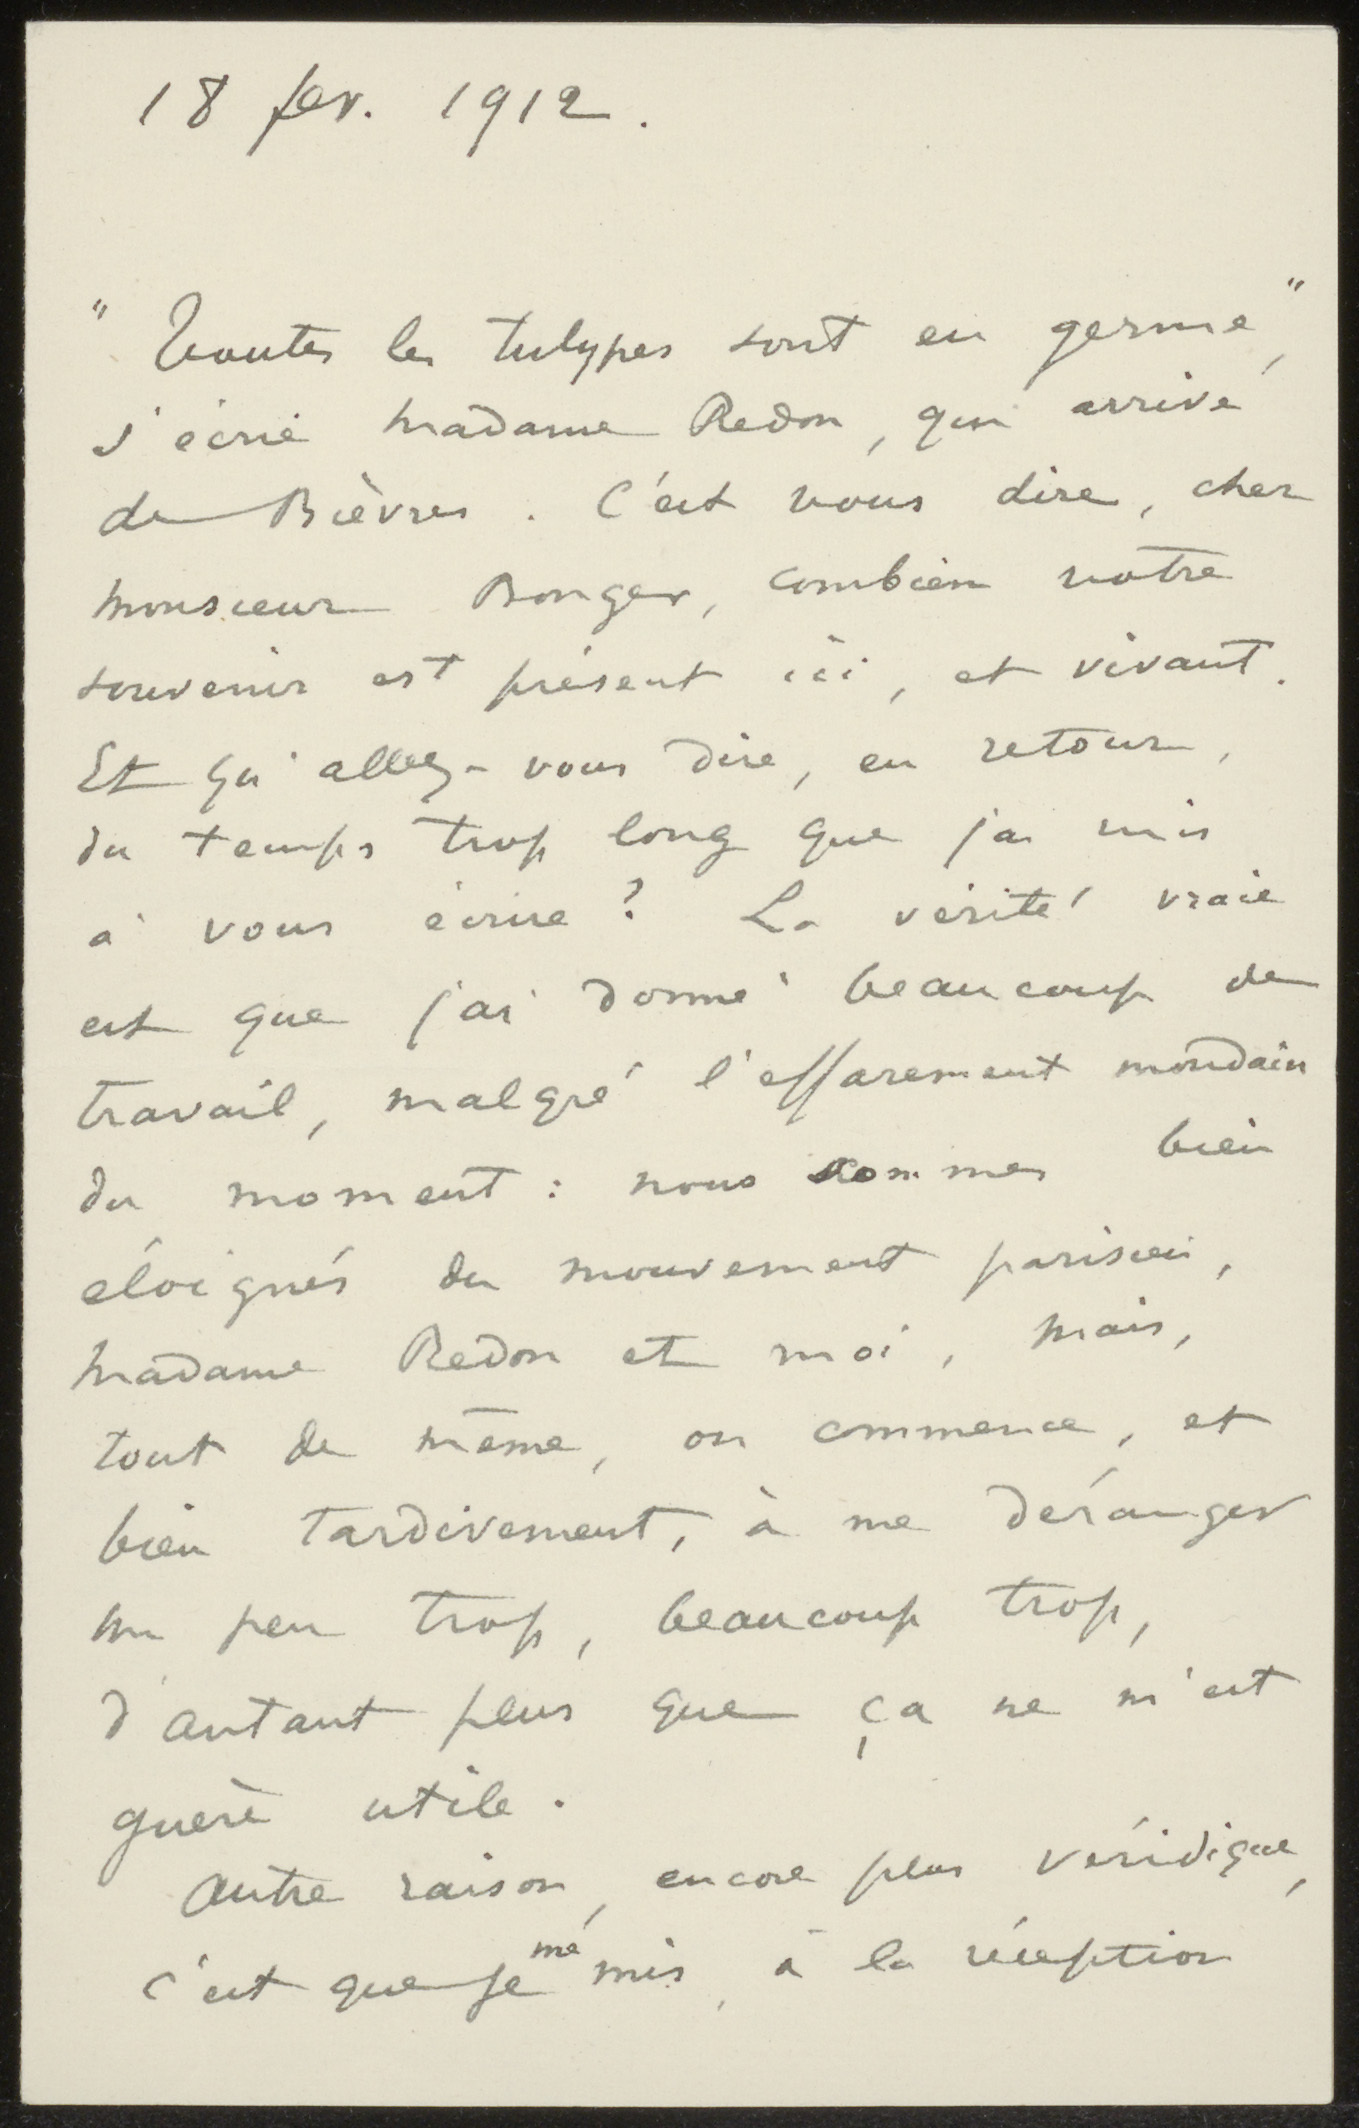 18 fev. 1912.
" Toutes les tulypes sont en germe,"
s'écrie madame Redon, qui arrive
de Bièvres. C'est vous dire, cher
monsieur Bonger, combien votre
souvenir est présent ici, et vivant.
Et qu'allez-vous dire, en retour,
du temps trop long que j'ai mis
à vous écrire? La vérité vraie
est que j'ai donné beaucoup de
travail, malgré l'effarement mondain
du moment: nous sommes bien
éloignés du mouvement parisien,
madame Redon et moi, mais,
tout de même, on commence, et
bien tardivement, à me déranger
un peu trop, beaucoup trop,
d'autant plus que ça ne m'est
guère utile.
Autre raison, encore plus véridique,
c'est que je me mis, à la réception